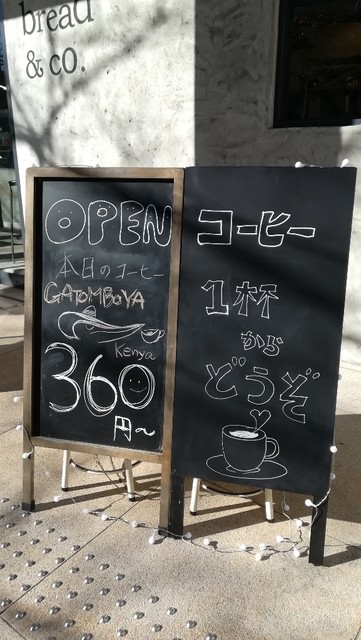 bread
& co.
OPEN
本日のコーヒー
GATOMBOYA
Kenya
360
円〜
コーヒー
1杯
から
どうぞ